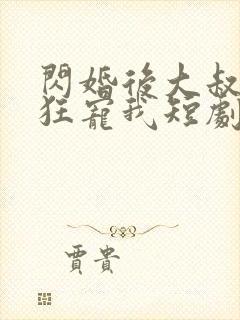 閃婚後大叔
狂寵我短劇
賈貴